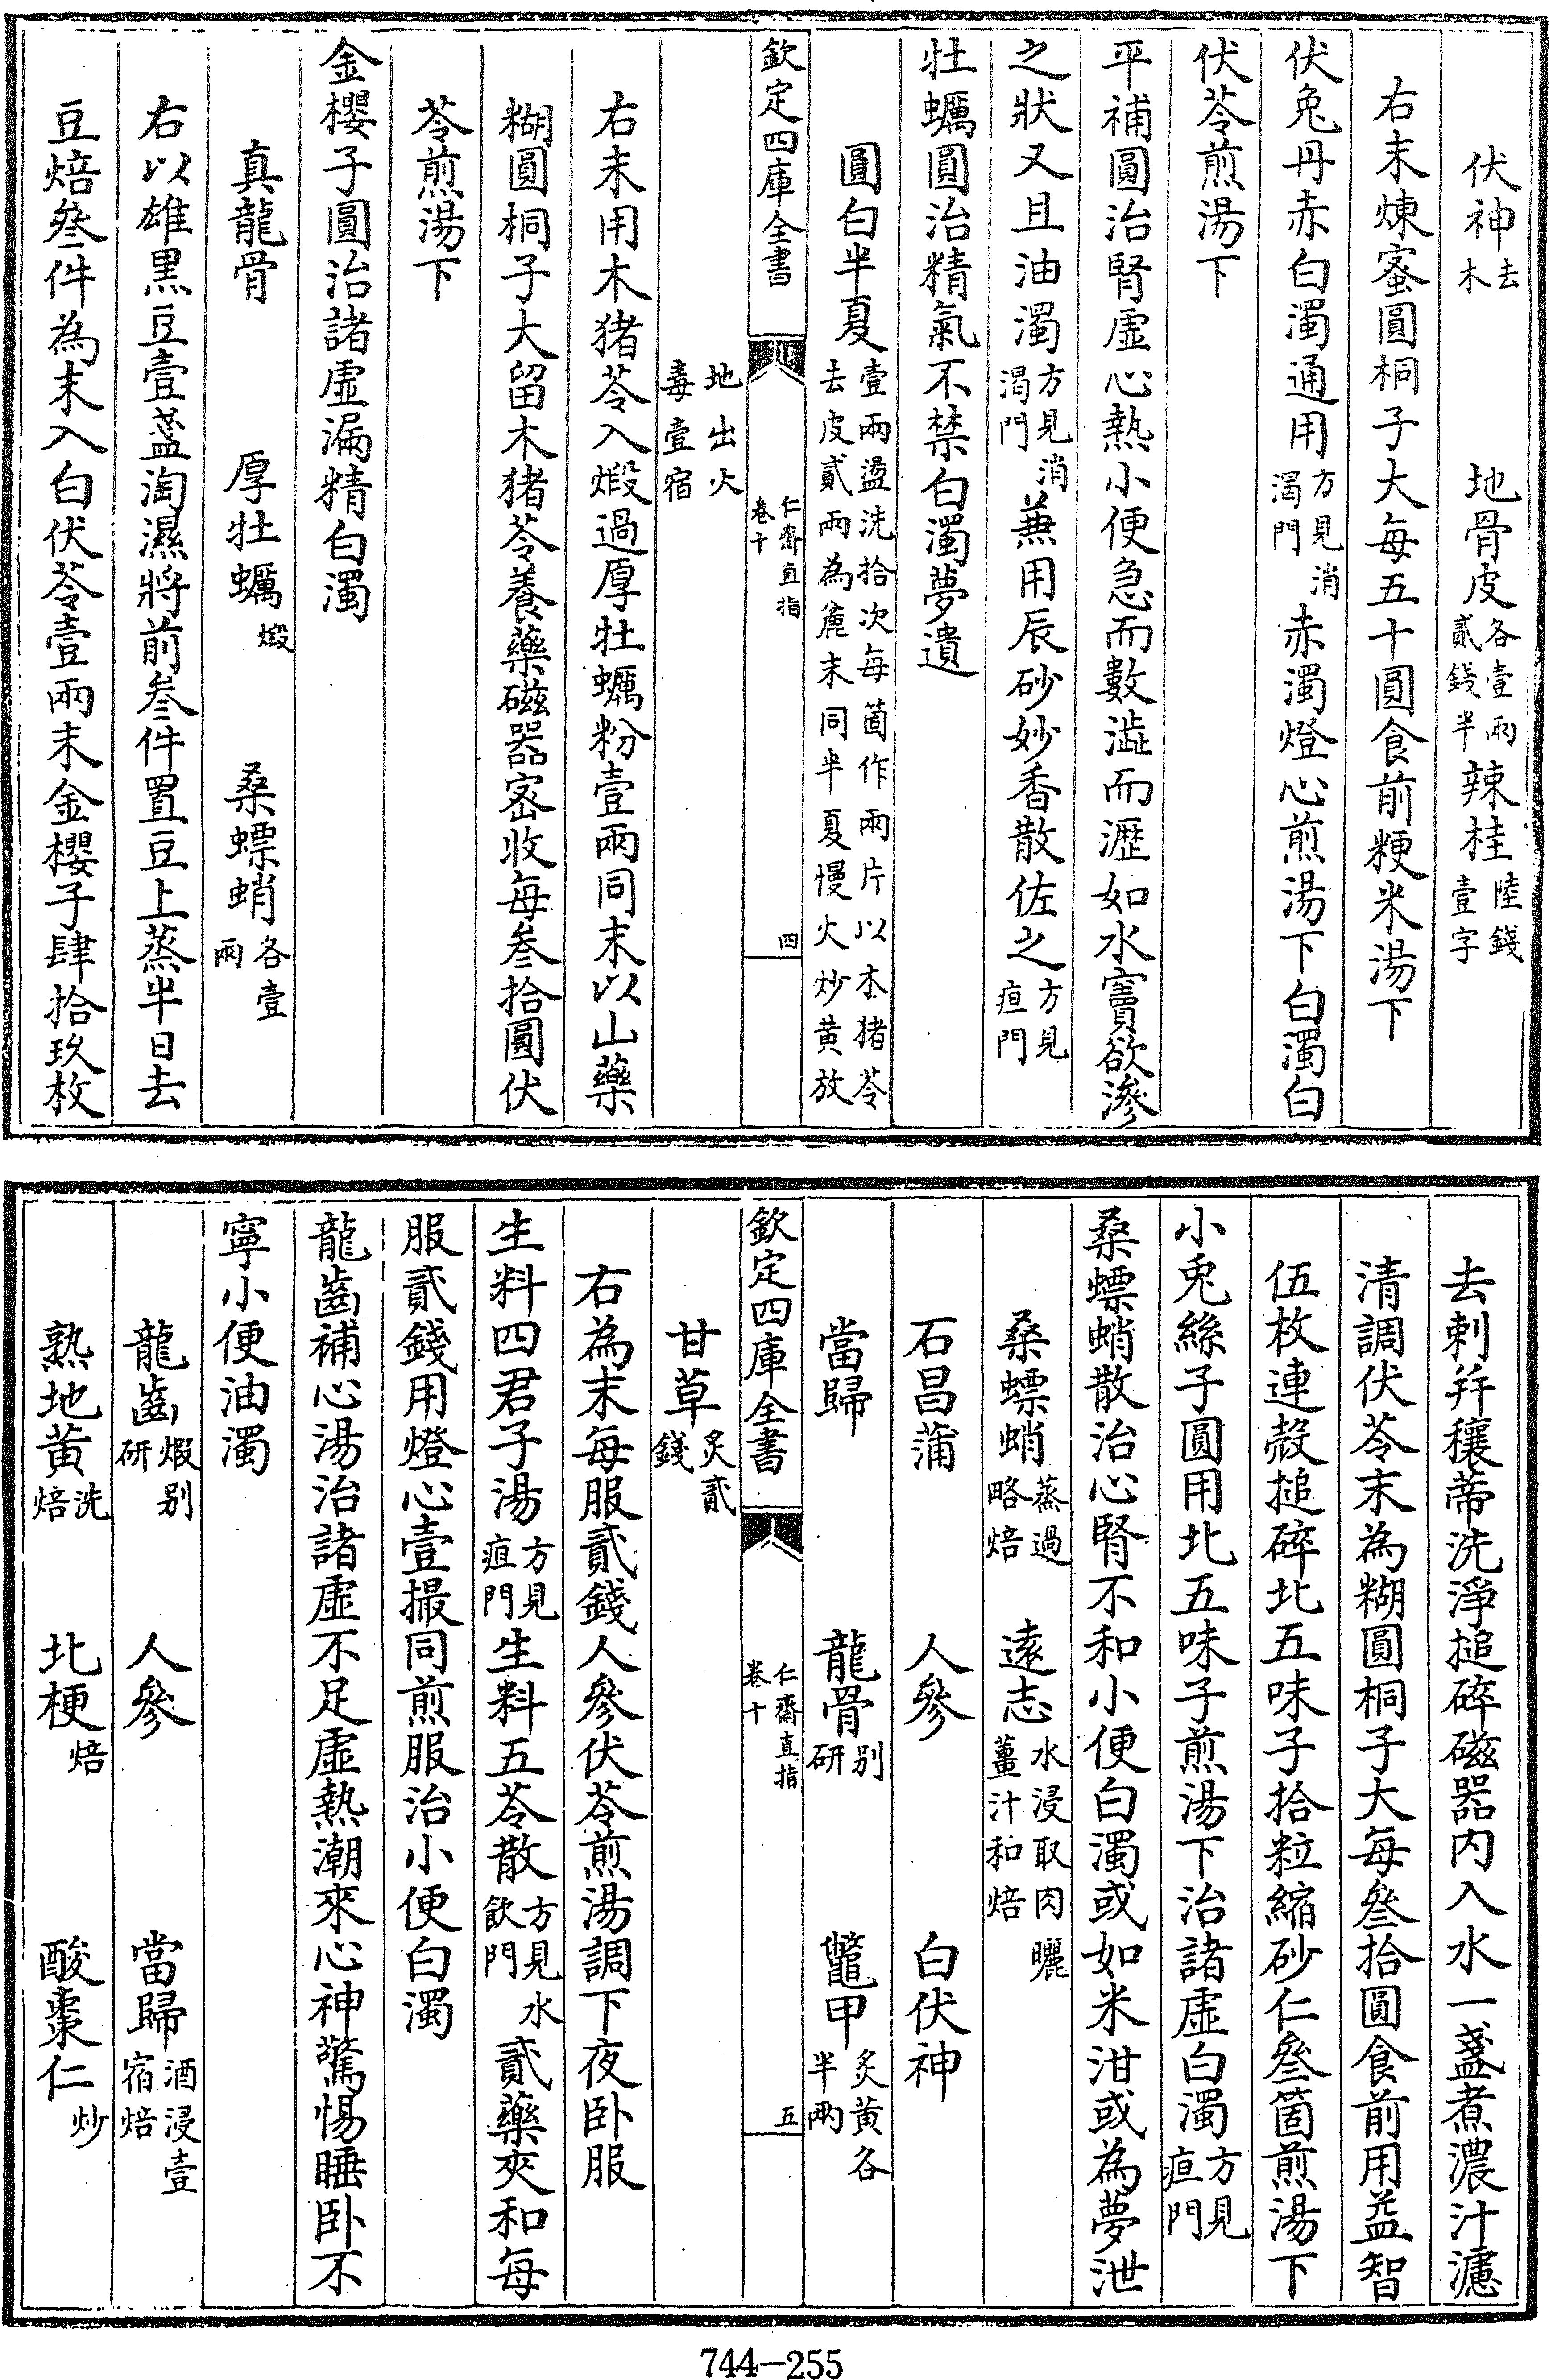 伏神去木　地骨皮各壹兩貳錢半　辣桂陸錢壹字
右末煉蜜圓桐子大每五十圓食前粳米湯下
伏兔丹赤白濁通用方見消渴門赤濁燈心煎湯下白濁白
伏苓煎湯下
平補圓治腎虛心熱小便急而數澁而瀝如水竇欲滲
之狀又且油濁方見消渴門蕪用辰砂妙香散佐之方見疸門
牡蠣圓治精氣不禁白濁夢遺
圓白半夏壹兩盪洗拾次每箇作兩片以木猪苓去皮貳兩為麄末同半夏慢火炒黄放
欽定四庫全書　仁齋直指卷十　四
地出火毒壹宿
右末用木猪苓入煅過厚牡蠣粉壹兩同末以山藥
糊圓桐子大留木猪苓養藥磁器密收每叁拾圓伏
苓煎湯下
金櫻子圓治諸虛漏精白濁
真龍骨　厚牡蠣煅　桑螵蛸各壹兩
右以雄黒豆壹盞淘濕將前叁件置豆上蒸半日去
豆焙叁件為末入白伏苓壹兩末金櫻子肆拾玖枚
去刺幷穰蒂洗淨搥碎磁器内入水一盞煮濃汁濾
清調伏苓末為糊圓桐子大每叁拾圓食前用益智
伍枚連殼搥碎北五味子拾粒縮砂仁叁箇煎湯下
小兎絲子圓用北五味子煎湯下治諸虛白濁方見疸門
桑螵蛸散治心腎不和小便白濁或如米泔或為夢泄
桑螵蛸蒸過略焙　遠志水浸取肉曬薑汁和焙
石昌蒲　人參　白伏神
當歸　龍骨别研　鼈甲炙黄各半兩
欽定四庫全書　仁齋直指卷十　五
甘草炙貳錢
右為末每服貳錢人參伏苓煎湯調下夜卧服
生料四君子湯方見疸門生料五苓散方見水飲門貳藥夾和每
服貳錢用燈心壹撮同煎服治小便白濁
龍齒補心湯治諸虛不足虛熱潮來心神驚惕睡卧不
寧小便油濁
龍齒煆别研　人參　當歸酒浸壹宿焙
熟地黄洗焙　北梗焙　酸棗仁炒
744—255